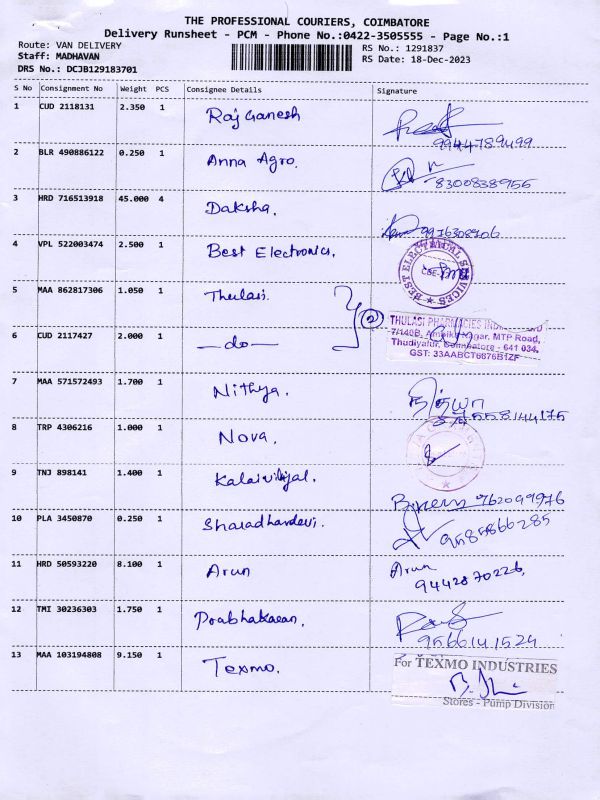 THE PROFESSIONAL COURIERS, COIMBATORE
Delivery Runsheet - PCM - Phone No.:0422-3505555 - Page No.:1
Route: VAN DELIVERY
RS No.: 1291837
Staff: MADHAVAN
RS Date: 18-Dec-2023
DRS No.: DCJB129183701
S No Consignment No Weight PCS Consignee Details Signature
1 CUD 2118131 2.350 1 Raj Ganesh
9944789499
2 BLR 490886122 0.250 1 Anna Agro.
8300838955
3 HRD 716513918 45.000 4 Daksha.
9976308706
4 VPL 522003474 2.500 1 Best Electronics.
BEST ELECTRICAL SERVICES
CBE
5 MAA 862817306 1.050 1 Thulasi.
2
THULASI PHARMACIES
7/140B, MTP Road,
Thudiyalur, Coimbatore - 641 034.
GST: 33AABCT6676B1ZF
6 CUD 2117427 2.000 1 —do—
7 MAA 571572493 1.700 1 Nithya.
8 TRP 4306216 1.000 1 Nova.
9 TNJ 898141 1.400 1
9762099976
10 PLA 3450870 0.250 1 Sharadhardevi.
9585866285
11 HRD 50593220 8.100 1 Arun
Arun
9442870226
12 TMI 30236303 1.750 1 Prabhakaran.
9566141524
13 MAA 103194808 9.150 1 Texmo.
For TEXMO INDUSTRIES
Stores - Pump Division